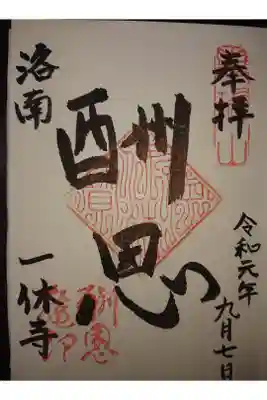 奉拝
令和元年
九月七日
酬恩
洛南
一休寺